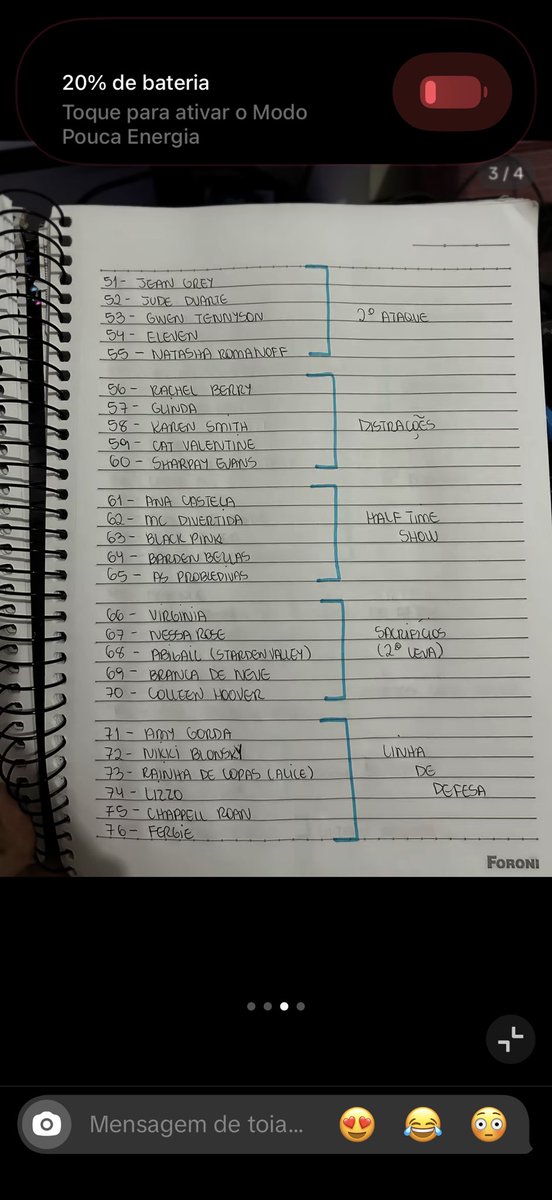 20% de bateria
Toque para ativar o Modo
Pouca Energia
3/4
51- JEAN GREY
52- JUDE DUARTE
53- GWEN TENNYSON
54- ELEVEN
55- NATASHA ROMANOFF
2º ATAQUE
56- RACHEL BERRY
57- GLINDA
58- KAREN SMITH
59- CAT VALENTINE
60- SHARPAY EVANS
DISTRAÇÕES
61- ANA CASTELA
62- MC DIVERTIDA
63- BLACK PINK
64- BARDEN BELLAS
65- AS PROBLEDIVAS
HALF TIME
SHOW
66- VIRGINIA
67- NESSA ROSE
68- ABIGAIL (STARDEN VALLEY)
69- BRANCA DE NEVE
70- COLLEEN HOOVER
SACRIFÍCIOS
(2ª LEVA)
71- AMY GORDA
72- NIKKI BLONSKY
73- RAINHA DE COPAS (ALICE)
74- LIZZO
75- CHAPPELL ROAN
76- FERGIE
LINHA
DE
DEFESA
FORONI
Mensagem de toia...